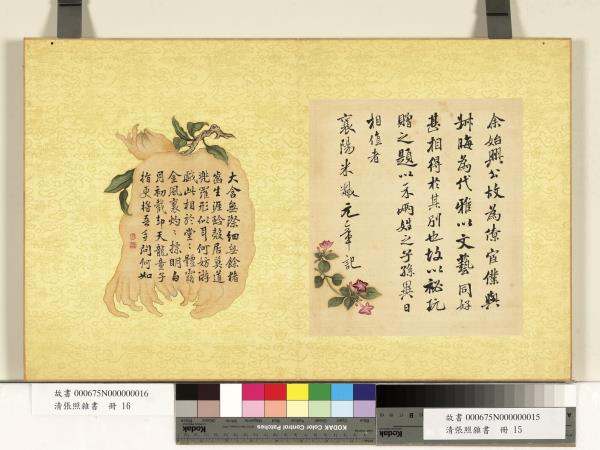 余始興公故為僚宦僕與
叔晦為代雅以文藝同好
甚相得於其別也故以秘玩
贈之題以示兩姓之子孫異日
相值者
襄陽米黻元章記
大含無際細無餘指
生涯殼居莫道
兜羅形似耳何妨游
戲此相於堂〻體露
金風裏灼〻明白
月初截却天龍童子
指更將吾手問何如
故書 000675N000000016
清張照雜書 冊 16
故書 000675N000000015
清張照雜書 冊 15
Kodak Color Control Patches
Kodak